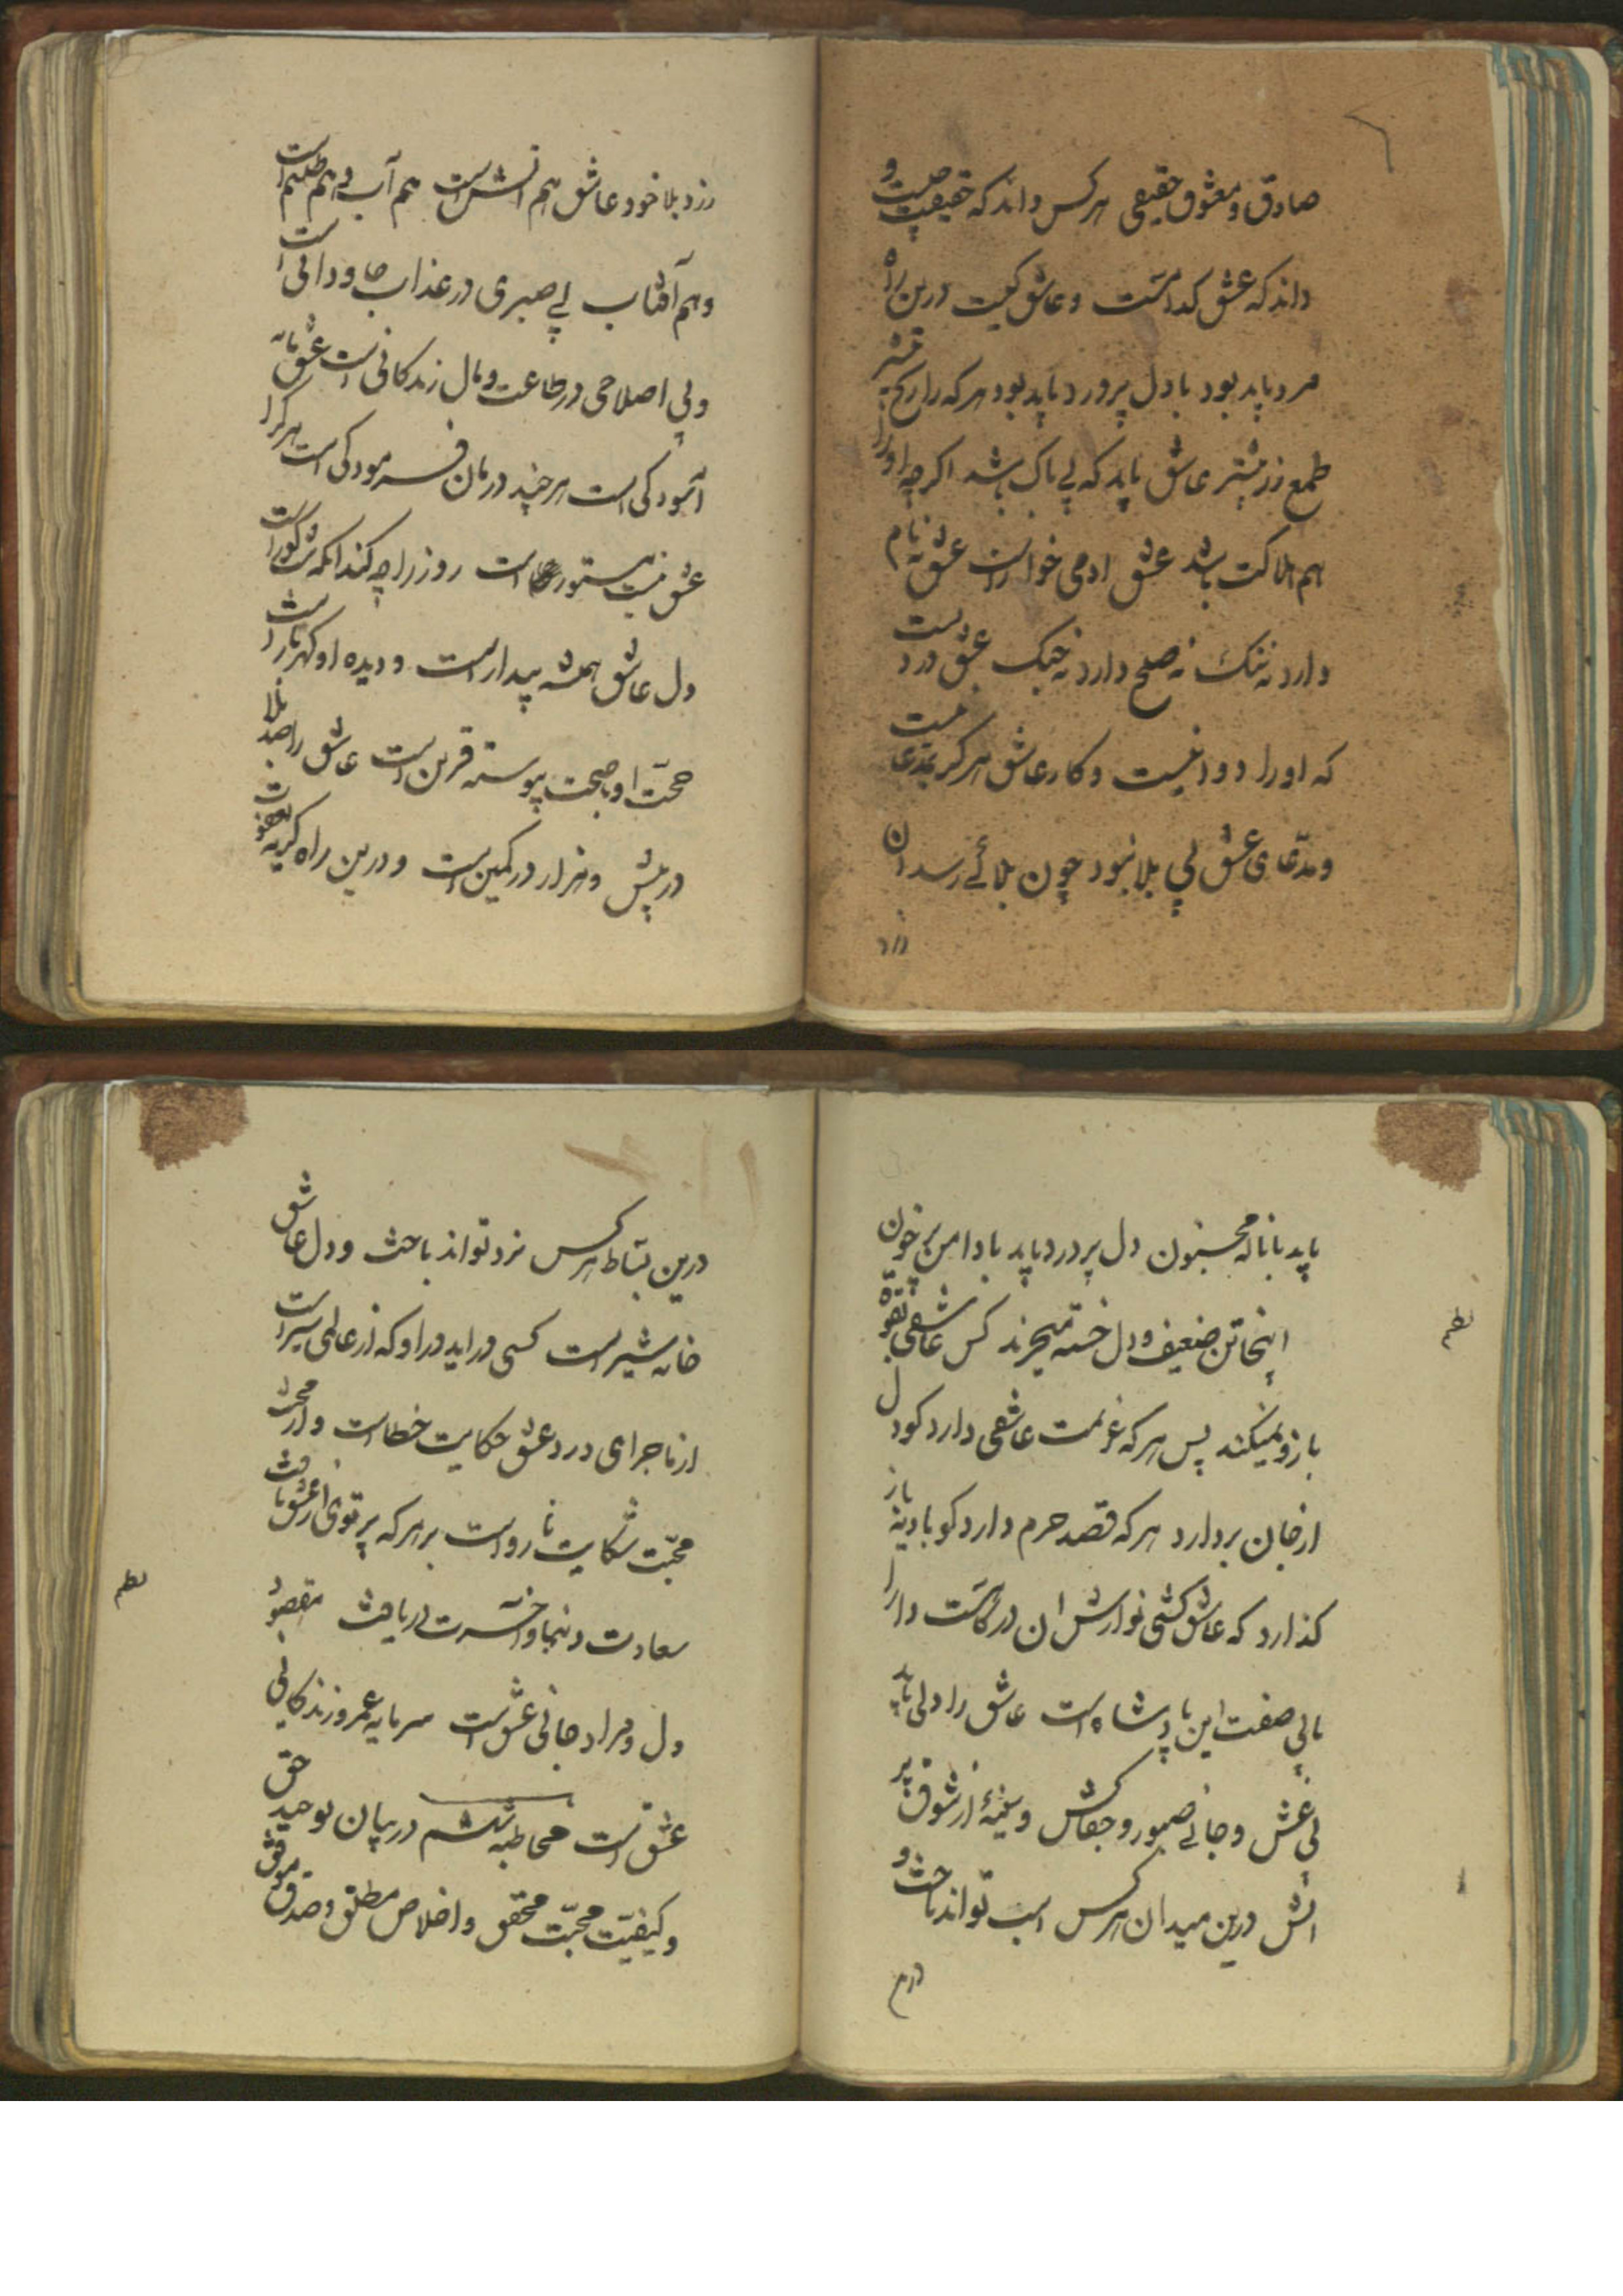 صادق و معشوق حقیقی هرکس داند که حقیقت چیست و
داند که عشق کدامست و عاشق کیست درین راه
مرد باید بود با دل پر درد باید بود هرکه را رنج بیشتر
طمع زر بیشتر عاشق باید که بی باک باشد اگرچه او را
هم هلاکت باشد عشق ادمی خوار است عشق نه نام
دارد نه ننک نه صلح دارد نه جنک عشق دردیست
که او را دوا نیست و کار عاشق هرکز بمدعا نیست
و مدّعای عشق بی بلا نبود چون بلائے رسد ان
رزد بلا خود عاشق هم اتش است هم آب و هم ظلم است
و هم آفتاب بے صبری در عذاب جاودانی است
و بی اصلاحی در طاعت وبال زندکانی است عشق مایه
آسودکی است هر چند درمان فرسودکی است هرکرا
عشق نیست ستور است روز را چه کند انکه شب کور است
دل عاشق همیشه بیدار است و دیده او کهربار است
محنّت او صحبت پیوسته قرین است عاشق را صد بلا
در پیش و هزار در کمین است و درین راه کریه یعقوب
باید با ناله مجنون دل پر درد باید با دامن پر خون
اینجا تن ضعیف و دل خسته میخرند کس عاشقی بقوّة
بازو نمیکند پس هرکه عزیمت عاشقی دارد کو دل
از جان بردارد هرکه قصد حرم دارد کو بادیه باز
کذارد که عاشق کشی نوازش ان درکاست دارا
یابی صفت این پادشاه است عاشق را دلی باید
بی غش و جانے صبور و جفاکش و سینهٔ از شوق پر
اتش درین میدان هرکس اسب تواند تاخت و
درین بساط هرکس نرد تواند باخت و دل عاشق
خانه شیر است کسی دراید درا و که از عالمی سیر است
از ماجرای درد عشق حکایت خطاست و از محنت
محبّت شکایت نارواست بر هرکه پرتوی از عشق تافت
سعادت دنیا و آخرت دریافت مقصود
دل و مراد جانی عشق است سرمایه عمر و زندکانی
عشق است مخاطبه ششم در بیان توحید حق
و کیفیّت محبّت محقق و اخلاص مطلق و صدق موفق